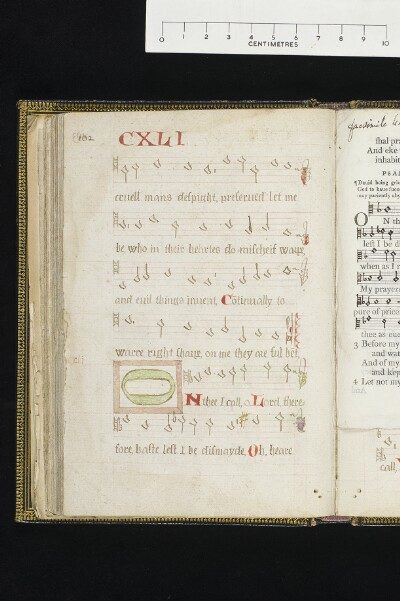 0 1 2 3 4 5 6 7 8 9 10
CENTIMETRES
102
CXLI
cruell mans despight, preserued let me
be who in their hertes do mischeif warp
and euil things inuent, Cotinually to
warre right sharp, on me they are ful bet
ON thee I call, o Lord, there
fore, haste lest I be dismayde. Oh, heare
facsimile
shal pra
And eke
inhabit
PSA
Dauid being
O N th
left I be di
when as I
My prayer
pure of price
thee as eue
3 Before my
and wat
And of my
and kep
4 Let not my
call,